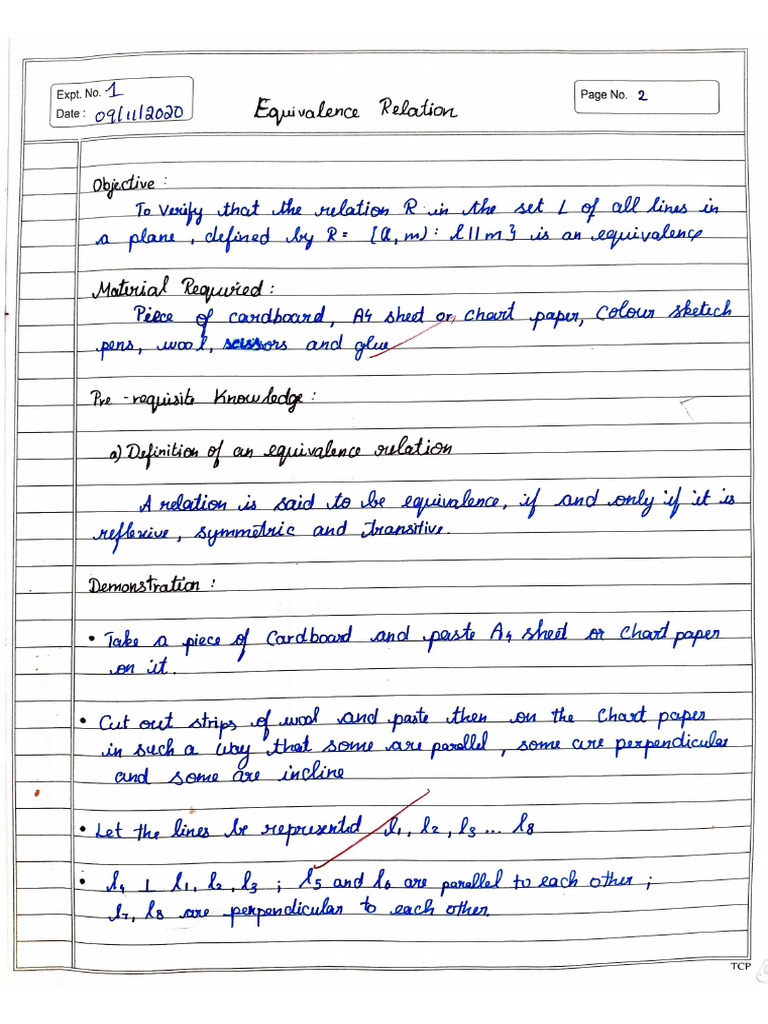 Expt. No. 1
Date : 09/11/2020
Equivalence Relation
Page No. 2
Objective :
To Verify that the relation R in the set L of all lines in
a plane, defined by R = {(l, m) : l || m } is an equivalence
Material Required :
Piece of cardboard, A4 sheet or chart paper, Colour sketch
pens, wool, scissors and glue
Pre-requisite Knowledge :
a) Definition of an equivalence relation
A relation is said to be equivalence, if and only if it is
reflexive, symmetric and transitive.
Demonstration :
• Take a piece of Cardboard and paste A4 sheet or Chart paper
on it.
• Cut out strips of wool and paste then on the Chart paper
in such a way that some are parallel, some are perpendicular
and some are incline
• Let the lines be represented l1, l2, l3 ... l8
• l4 ⊥ l1, l2, l3 ; l5 and l6 are parallel to each other ;
l7, l8 are perpendicular to each other.
TCP